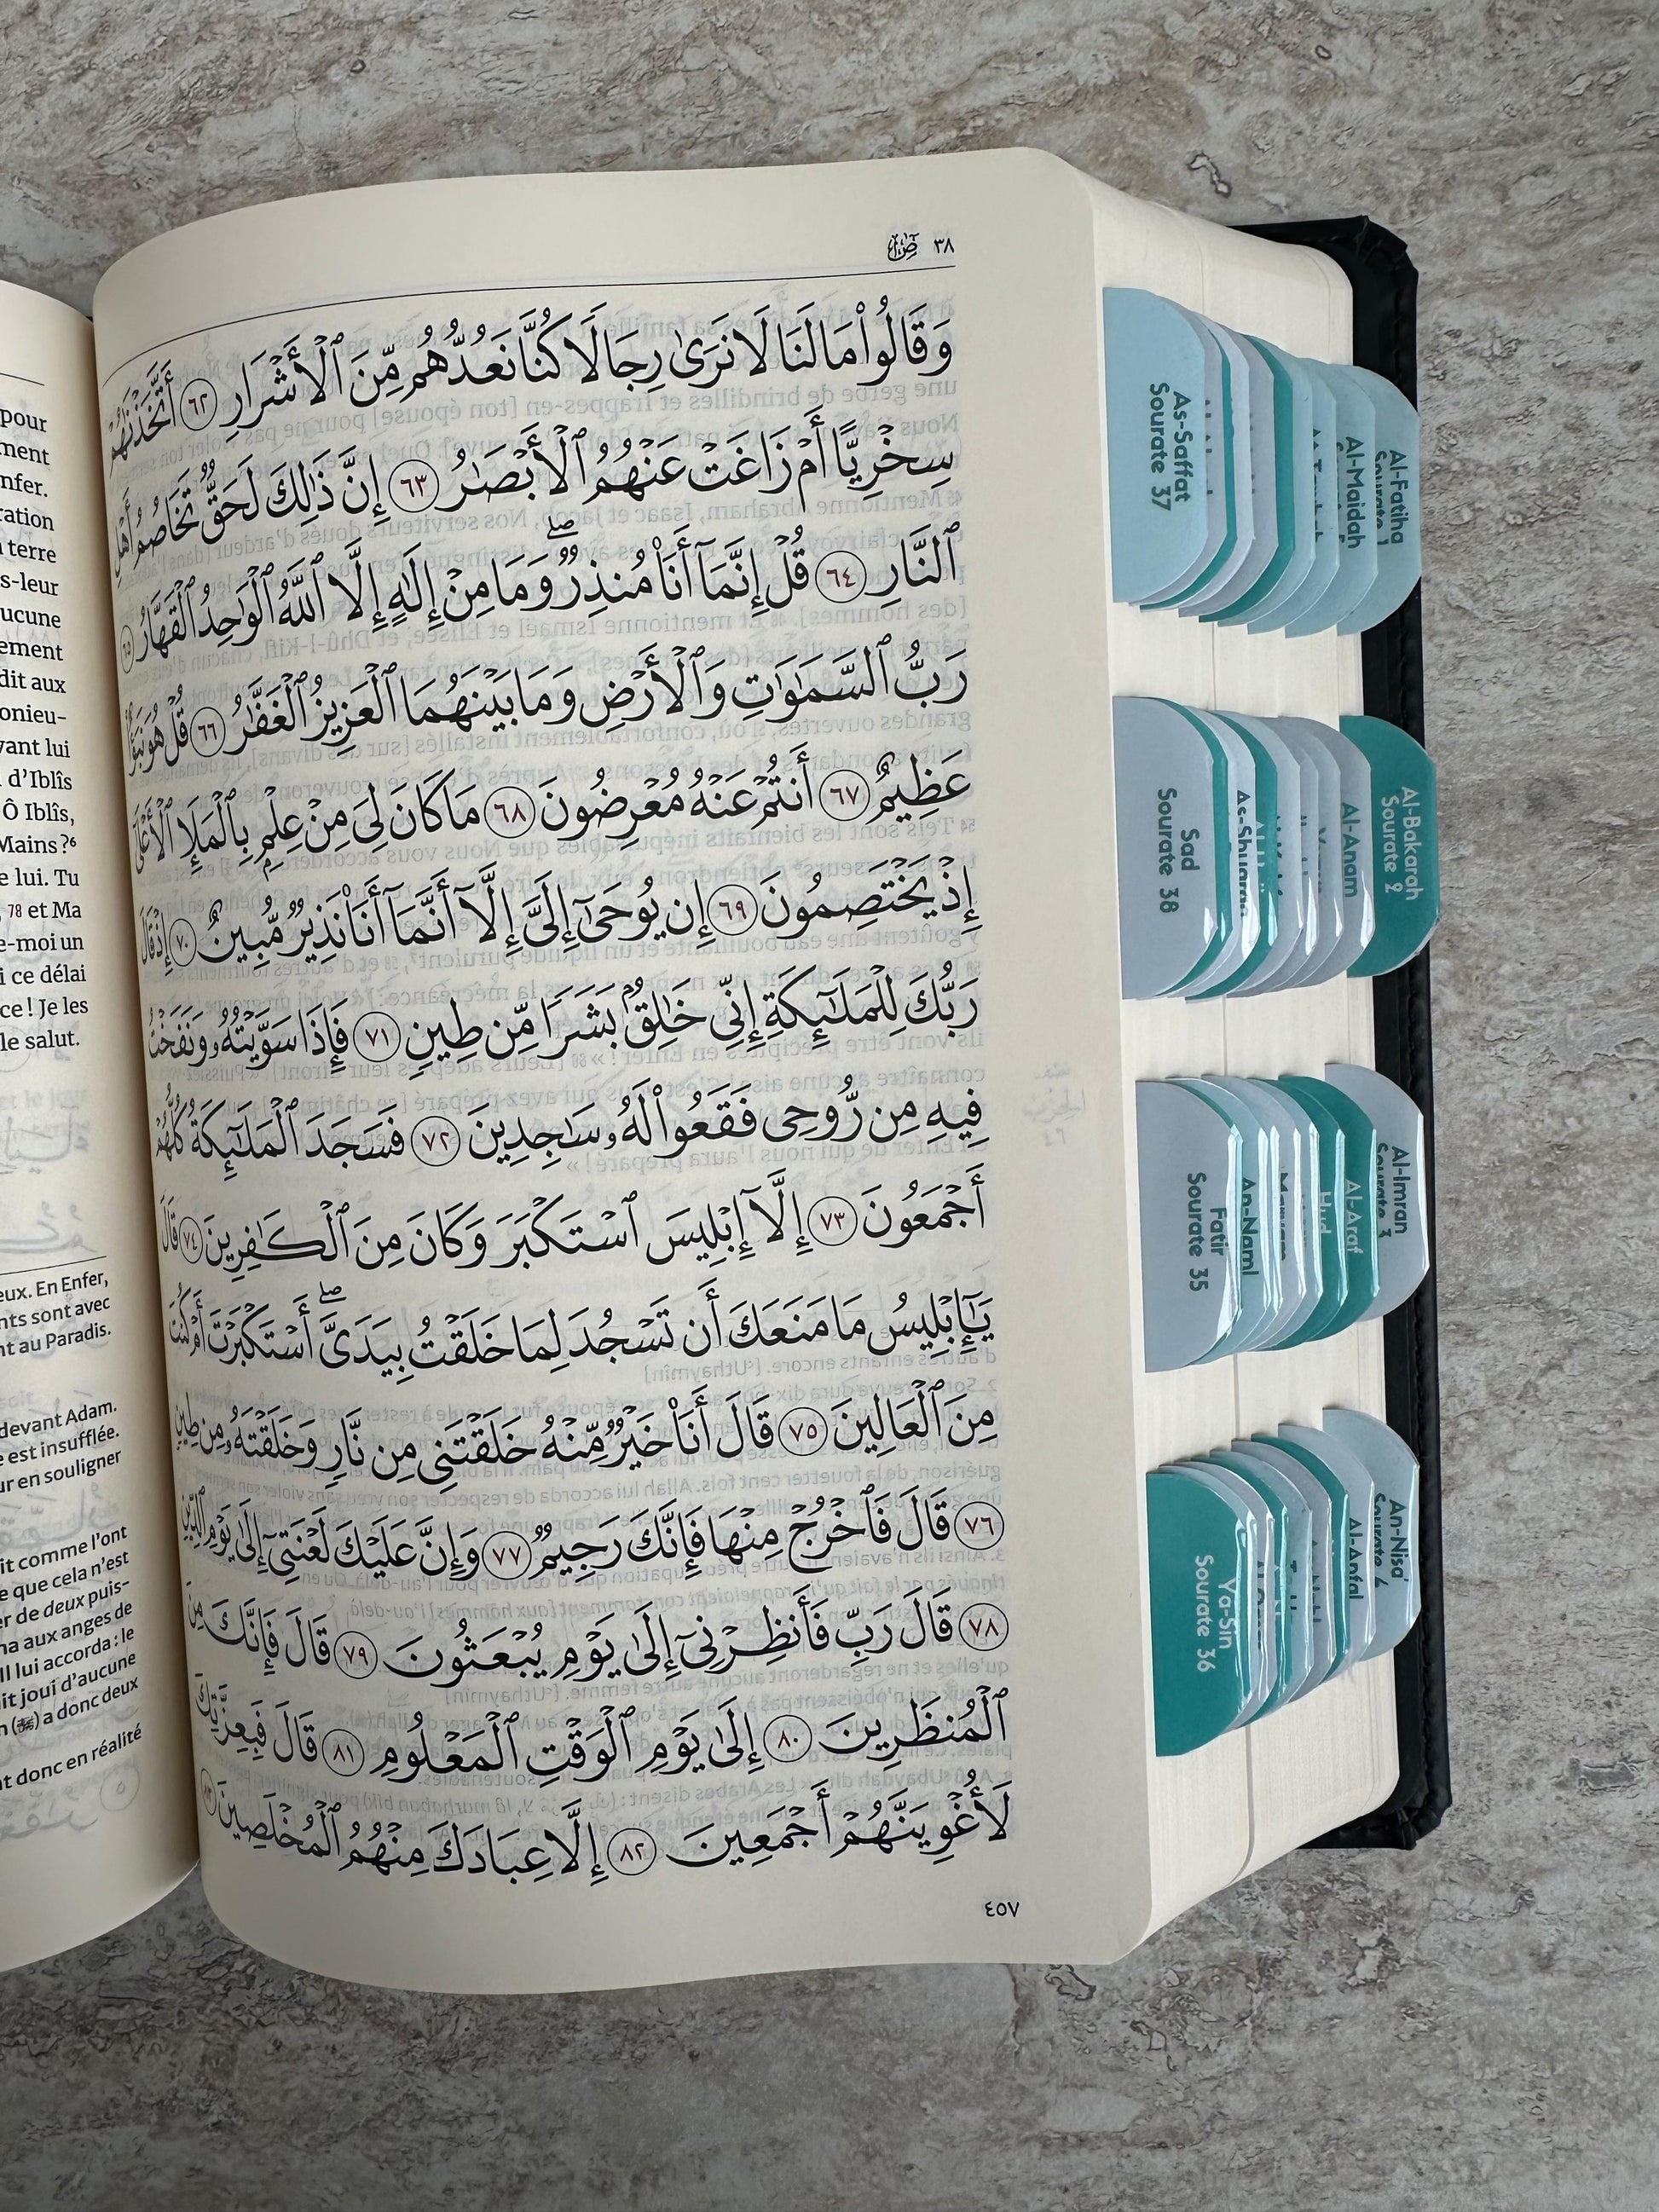 ٣٨ ص
وَقَالُوا۟ مَا لَنَا لَا نَرَىٰ رِجَالًا كُنَّا نَعُدُّهُم مِّنَ ٱلْأَشْرَارِ ٦٢ أَتَّخَذْنَٰهُمْ
سِخْرِيًّا أَمْ زَاغَتْ عَنْهُمُ ٱلْأَبْصَٰرُ ٦٣ إِنَّ ذَٰلِكَ لَحَقٌّ تَخَاصُمُ أَهْلِ
ٱلنَّارِ ٦٤ قُلْ إِنَّمَآ أَنَا۠ مُنذِرٌ ۖ وَمَا مِنْ إِلَٰهٍ إِلَّا ٱللَّهُ ٱلْوَٰحِدُ ٱلْقَهَّارُ ٦٥
رَبُّ ٱلسَّمَٰوَٰتِ وَٱلْأَرْضِ وَمَا بَيْنَهُمَا ٱلْعَزِيزُ ٱلْغَفَّٰرُ ٦٦ قُلْ هُوَ نَبَؤٌا۟
عَظِيمٌ ٦٧ أَنتُمْ عَنْهُ مُعْرِضُونَ ٦٨ مَا كَانَ لِىَ مِنْ عِلْمٍۭ بِٱلْمَلَإِ ٱلْأَعْلَىٰٓ
إِذْ يَخْتَصِمُونَ ٦٩ إِن يُوحَىٰٓ إِلَىَّ إِلَّآ أَنَّمَآ أَنَا۠ نَذِيرٌ مُّبِينٌ ٧٠ إِذْ قَالَ
رَبُّكَ لِلْمَلَٰٓئِكَةِ إِنِّى خَٰلِقٌۢ بَشَرًا مِّن طِينٍ ٧١ فَإِذَا سَوَّيْتُهُۥ وَنَفَخْتُ
فِيهِ مِن رُّوحِى فَقَعُوا۟ لَهُۥ سَٰجِدِينَ ٧٢ فَسَجَدَ ٱلْمَلَٰٓئِكَةُ كُلُّهُمْ
أَجْمَعُونَ ٧٣ إِلَّآ إِبْلِيسَ ٱسْتَكْبَرَ وَكَانَ مِنَ ٱلْكَٰفِرِينَ ٧٤ قَالَ
يَٰٓإِبْلِيسُ مَا مَنَعَكَ أَن تَسْجُدَ لِمَا خَلَقْتُ بِيَدَىَّ ۖ أَسْتَكْبَرْتَ أَمْ كُنتَ
مِنَ ٱلْعَالِينَ ٧٥ قَالَ أَنَا۠ خَيْرٌ مِّنْهُ خَلَقْتَنِى مِن نَّارٍ وَخَلَقْتَهُۥ مِن طِينٍ
٧٦ قَالَ فَٱخْرُجْ مِنْهَا فَإِنَّكَ رَجِيمٌ ٧٧ وَإِنَّ عَلَيْكَ لَعْنَتِىٓ إِلَىٰ يَوْمِ ٱلدِّينِ
٧٨ قَالَ رَبِّ فَأَنظِرْنِىٓ إِلَىٰ يَوْمِ يُبْعَثُونَ ٧٩ قَالَ فَإِنَّكَ مِنَ
ٱلْمُنظَرِينَ ٨٠ إِلَىٰ يَوْمِ ٱلْوَقْتِ ٱلْمَعْلُومِ ٨١ قَالَ فَبِعِزَّتِكَ
لَأُغْوِيَنَّهُمْ أَجْمَعِينَ ٨٢ إِلَّا عِبَادَكَ مِنْهُمُ ٱلْمُخْلَصِينَ ٨٣
٤٥٧
pour
terre
s-leur
dit aux
vant lui
d'Iblîs
Ô Iblîs,
Mains ?⁶
e lui. Tu
78 et Ma
e-moi un
i ce délai
ce ! Je les
le salut.
eux. En Enfer,
nts sont avec
nt au Paradis.
devant Adam.
e est insufflée.
ur en souligner
it comme l'ont
e que cela n'est
er de deux puis-
na aux anges de
Il lui accorda : le
it joui d'aucune
a donc deux
t donc en réalité
As-Saffat
Sourate 37
Al-Maidah
Al-Fatiha
Sourate 1
Sad
Sourate 38
As-Shuaraa
Al-Anam
Al-Bakarah
Sourate 2
Fatir
Sourate 35
An-Naml
Maryam
Hud
Al-Araf
Al-Imran
Sourate 3
Ya-Sin
Sourate 36
Al-Anfal
An-Nisa'
Sourate 4